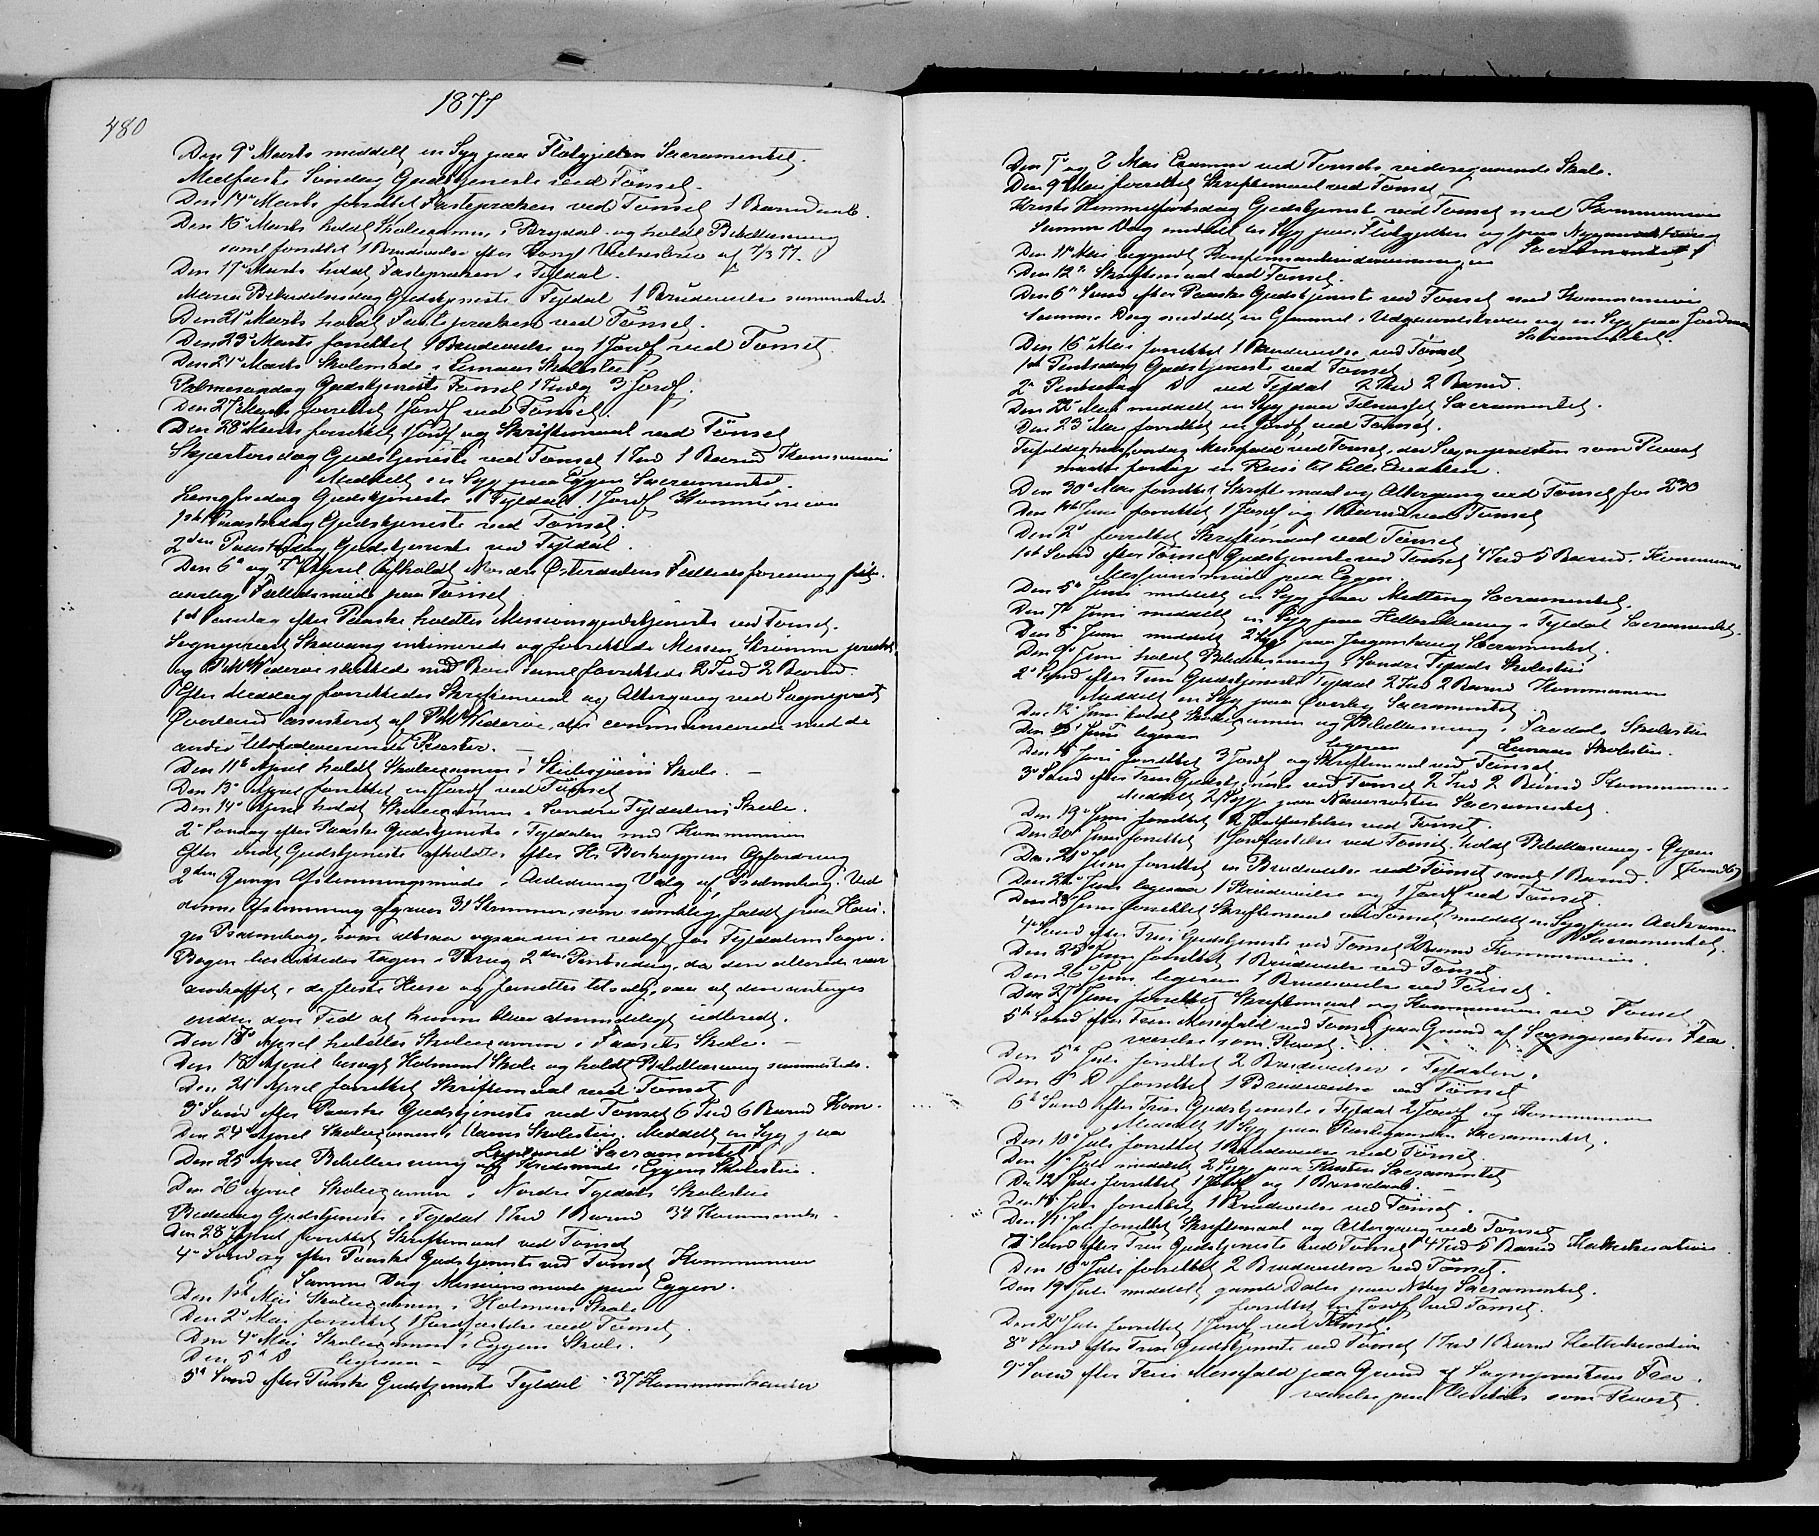 480
1877
Den 9de Marts meddelt en Syg paa Flatgjelten Sacramentet.
Midfaste Søndag Gudstjeneste ved Tønset.
Den 14de Marts forrettet Fasteprædiken ved Tønset 1 Barnedaab.
Den 16de Marts holdt Skoleexamen i Brydal og holdt Bibellæsning
samt forrettet 1 Brudevielse efter Kongl
Den 17de Marts holdt Fasteprædiken i Tyldal.
Mariæ Bebudelsesdag Gudstjeneste Tyldal 1 Brudevielse sammesteds
Den 21de Marts holdt Fasteprædiken ved Tønset.
Den 23de Marts forrettet 1 Brudevielse og 1 Jordf ved Tønset.
Den 21de Marts Skolemøde i Skolestue
Palmesøndag Gudstjeneste Tønset 1 Indg 3 Jordf.
Den 27 Marts forrettet 1 Jordf ved Tønset.
Den 28de Marts forrettet 1 Jordf og Skriftemaal ved Tønset
Skjærtorsdag Gudstjeneste ved Tønset 1 Ind 1 Barnd Kommunion
Meddelt en Syg paa Eggen Sacramentet.
Langfredag Gudstjeneste i Tyldal 1 Jordf Kommunion
1ste Paaskedag Gudstjeneste ved Tønset.
2den Paaskedag Gudstjeneste ved Tyldal.
Den 6te og 7de April afholdt Nordre Østerdalens Fælledsforening sit
aarlige Fælledsmøde paa Tønset.
1ste Søndag efter Paaske holdtes Missionsgudstjeneste ved Tønset.
Sogneprest intimerede og forrettede Messen,
og Widerøe sluttede med Bøn samt forrettede 2 Ind 2 Barnd.
Efter Middag forrettedes Skriftemaal og Altergang ved Sogneprest
Øverland assisteret af Widerøe, der communicerede med de
andre tilstedeværende Præster.
Den 11te April holdt Skoleexamen i Skole.
Den 13de April forrettet en Jordf ved Tønset
Den 14de April holdt Skoleexamen i Søndre Tyldalens Skole.
2den Søndag efter Paaske Gudstjeneste i Tyldalen med Kommunion
Efter endt Gudstjeneste afholdtes efter Hr Biskoppens Opfordring
2den Gangs Afstemningsmøde i Anledning Valg af Psalmebog. Ved
denne Afstemning afgaves 31 Stemmer, som samtlige faldt paa Hau-
ges Psalmebog, som altsaa ogsaa nu er valgt for Tyldalens Sogn.
Bogen besluttedes tagen i Brug 2den Pintsedag, da den allerede var
anskaffet i de fleste Huse og forøvrigt til salg, saa at den antoges
inden den Tid at kunne blive almindeligt udbredt.
Den 17de April holdtes Skoleexamen i Faasets Skole.
Den 18de April besøgt Holmens Skole og holdt Bibellæsning sammesteds.
Den 21de April forrettet Skriftemaal ved Tønset
3die Sønd efter Paaske Gudstjeneste ved Tønset 6 Ind 6 Barnd Kom.
Den 24de April Skoleexamen i Skolestue. Meddelt en Syg paa
Sacramentet
Den 25 April Bibellæsning og Kredsmøde i Eggens Skolestue.
Den 26 April Skoleexamen i Nordre Tyldals Skolestue
Bededag Gudstjeneste i Tyldal 1 Ind 1 Barnd 34 Kommunik.
Den 28de April forrettet Skriftemaal ved Tønset
4de Søndag efter Paaske Gudstjeneste ved Tønset Kommunion
Samme Dag Missionsmøde paa Eggen.
Den 1ste Mai Skoleexamen i Holmens Skole
Den 2den Mai forrettet 1 Jordfæstelse ved Tønset.
Den 4de Mai Skoleexamen i Eggens Skole.
Den 5te D ligesaa
5te Sønd efter Paaske Gudstjeneste Tyldal 37 Kommunikanter
Den 7de og 8 Mai Examen ved Tønsets videregaaende Skole.
Den 9de Mai forrettet Skriftemaal ved Tønset
Kristi Himmelfartsdag Gudstjeneste ved Tønset med Kommunion
Samme Dag meddelt en Syg paa Flatgjelten og 1 paa
Sacramentet
Den 11te Mai begyndt Konfirmantundervisningen
Den 12te Skriftemaal ved Tønset.
Den 6te Sønd efter Paaske Gudstjeneste ved Tønset med Kommunion
Samme Dag meddelt en Gammel i og en Syg paa
Sacramentet.
Den 16de Mai forrettet 1 Brudevielse ved Tønset
1ste Pintsedag Gudstjeneste ved Tønset
2den Pintsedag D ved Tyldal 2 Ind 2 Barnd.
Den 22de Mai meddelt en Syg paa Sacramentet.
Den 23de Mai forrettet en Jordf ved Tønset.
Trefoldighedssøndag Messefald ved Tønset, da Sognepresten som Provst
maatte foretage en Reise til Lille Elvedalen.
Den 30te Mai forrettet Skriftemaal og Altergang ved Tønset for 230
Den 1ste Juni forrettet 1 Jordf og 1 Barnd ved Tønset
Den 2den forrettet Skriftemaal ved Tønset
1ste Sønd efter Gudstjeneste ved Tønset 4 Ind 5 Barnd. Kommunion
Missionsmøde paa Eggen.
Den 5te Juni meddelt en Syg paa Sacramentet.
Den 7de Juni meddelt en Syg paa i Tyldal Sacramentet.
Den 8de Juni meddelt 2 Syge paa Sacramentet.
Den 9de Juni holdt Bibellæsning i Søndre Tyldals Skolestue
2den Sønd efter Trin Gudstjeneste Tyldal 2 Ind 2 Barnd Kommunion
Meddelt en Syg paa Øverby Sacramentet.
Den 12te Juni holdt Skoleexamen og Bibellæsning i Skolestue
Den 13de Juni ligesaa ligesaa Skolestue.
Den 16 Juni forrettet 3 Jordf og Skriftemaal ved Tønset
3die Sønd efter Trin Gudstjeneste ved Tønset 2 Ind 2 Barnd Kommunion
Meddelt 2 Syge paa Sacramentet.
Den 19de Juni forrettet 2 Jordfæstelser ved Tønset.
Den 20de Juni forrettet 1 Jordfæstelse ved Tønset, holdt Bibellæsning i
Den 21de Juni forrettet en Brudevielse ved Tønset samt 1 Barnd.
Den 22de Juni ligesaa 1 Brudevielse og 1 Jordf ved Tønset.
Den 23de Juni forrettet Skriftemaal ved Tønset, meddelt en Syg paa
Sacramentet.
4de Sønd efter Trin Gudstjeneste ved Tønset 2 Barnd Kommunion.
Den 25de Juni forrettet 1 Brudevielse ved Tønset.
Den 26de Juni ligesaa 1 Brudevielse ved Tønset.
Den 27de Juni forrettet Skriftemaal og Kommunion ved Tønset
5te Sønd efter Trin Messefald ved Tønset paa Grund af Sogneprestens Fra-
værelse som Provst.
Den 5te Juli forrettet 2 Brudevielser i Tyldalen.
Den 6te D forrettet 1 Brudevielse ved Tønset
6te Sønd efter Trin Gudstjeneste i Tyldal 2 Jordf og Kommunion
Meddelt 1 Syg paa Sacramentet.
Den 10de Juli forrettet 1 Brudevielse ved Tønset.
Den 11te Juli meddelt 2 Syge paa Sacramentet
Den 12te Juli forrettet 1 Jordf og 1 Barnedaab.
Den 13de Juli forrettet 1 Brudevielse ved Tønset.
Den Juli forrettet Skriftemaal og Altergang ved Tønset
7de Sønd efter Trin Gudstjeneste ved Tønset 4 Ind 5 Barnd Katekisation
Den 18de Juli forrettet 2 Brudevielser ved Tønset.
Den 19de Juli meddelt gamle paa Sacramentet.
forrettet en Jordf ved Tønset.
Den 20de Juli forrettet 1 Jordf ved Tønset.
8de Sønd efter Trin Gudstjeneste ved Tønset 1 Ind 1 Barnd Katekisation
9de Sønd efter Trin Messefald paa Grund af Sogneprestens Fra-
værelse paa Visitats som Provst.